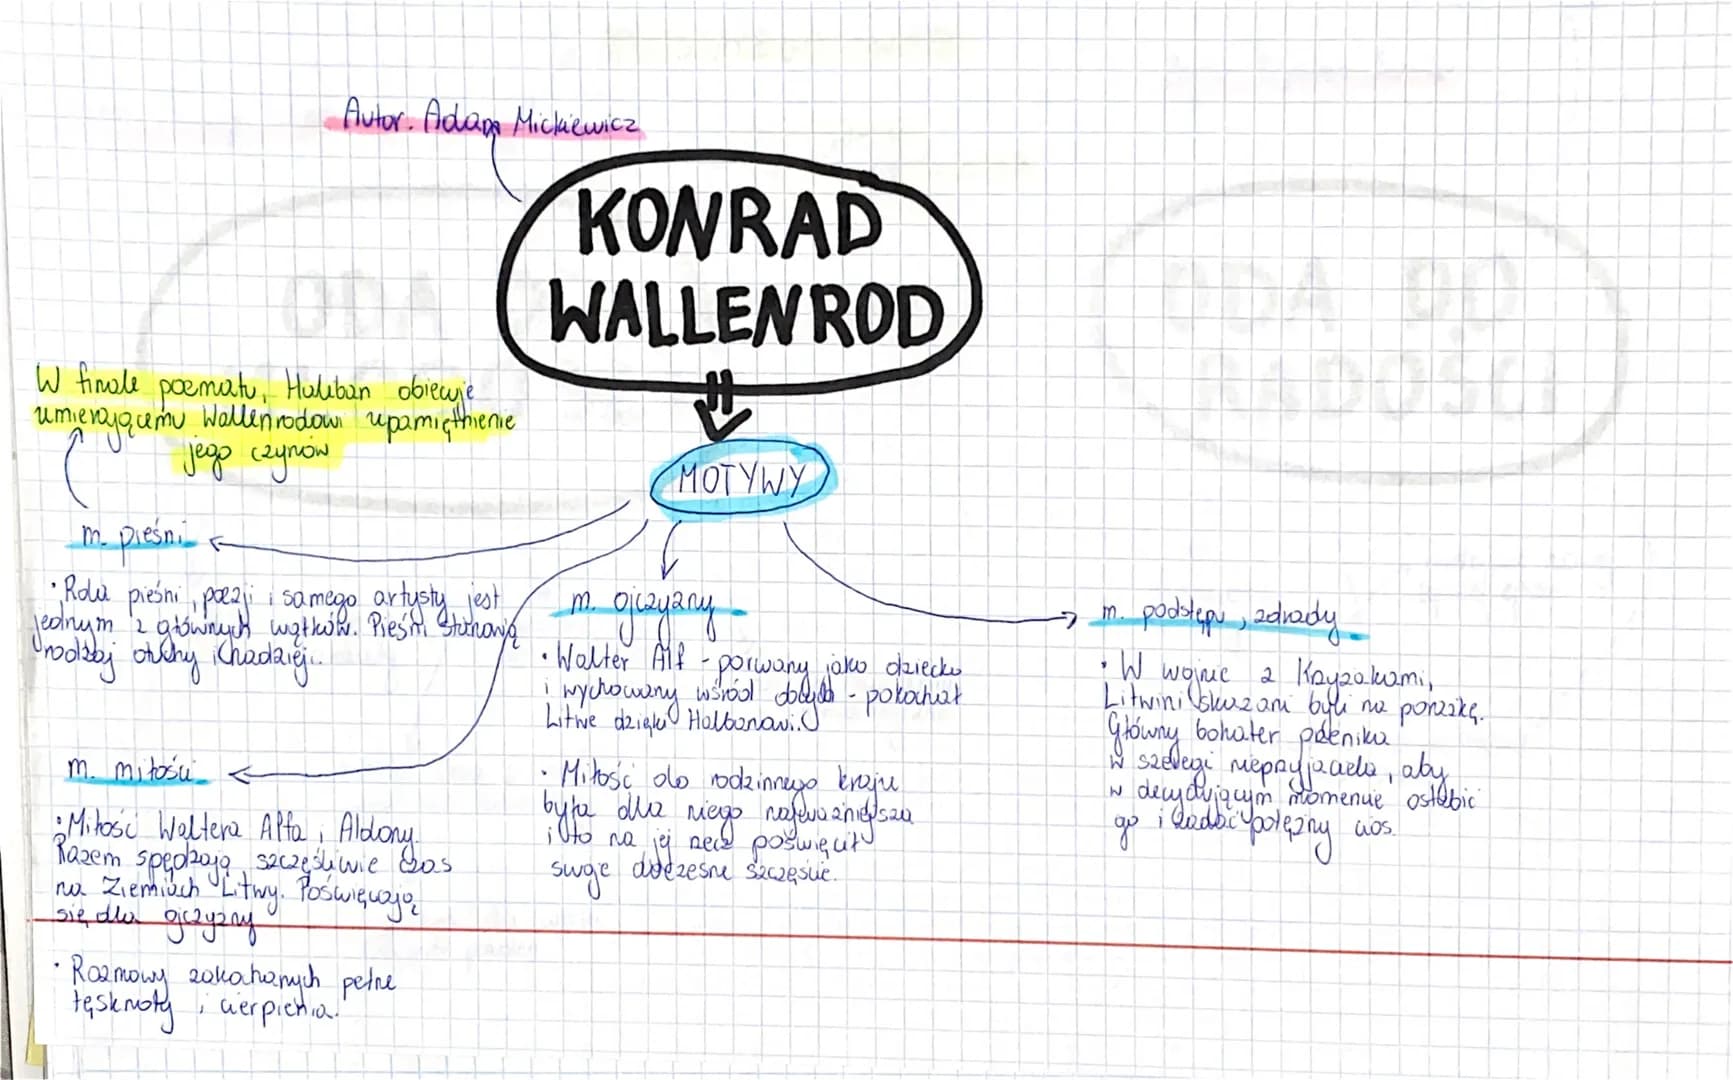 Autor. Adam Mickiewicz
KONRAD
WALLENROD
MOTYWY
W finale poematu, Halban obiecuje
umierającemu Wallenrodowi upamiętnienie
jego czynów
m. pieśni
· Rola pieśni, poezji i samego artysty jest
jednym z głównych wątków. Pieśni stanowią
rodzaj otuchy i nadziei.
m. miłości
· Miłość Waltera Alfa i Aldony.
Razem spędzają szczęśliwie czas
na Ziemiach Litwy. Poświęcają
się dla ojczyzny
· Rozmowy zakochanych pełne
tęsknoty i cierpienia.
m. ojczyzny
· Walter Alf - porwany jako dziecko
i wychowany wśród obcych - pokochał
Litwe dzięki Halbanowi.
· Miłość do rodzinnego kraju
była dla niego najważniejsza
i to na jej rzecz poświęcił
swoje doczesne szczęście.
m. podstępu, zdrady
· W wojnie z Krzyżakami,
Litwini skazani byli na porażkę.
Główny bohater przenika
w szeregi nieprzyjaciela, aby
w decydującym momencie osłabić
go i zadać potężny cios.
QO AGO